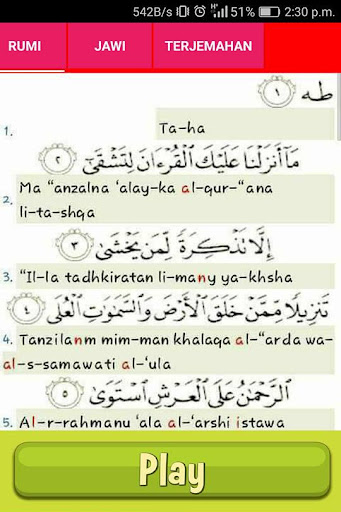 542B/s 51% 2:30 p.m.
RUMI JAWI TERJEMAHAN
طه ١
1. Ta-ha
مَآ أَنزَلْنَا عَلَيْكَ ٱلْقُرْءَانَ لِتَشْقَىٰٓ ٢
2. Ma “anzalna ‘alay-ka al-qur-“ana
li-ta-shqa
إِلَّا تَذْكِرَةً لِّمَن يَخْشَىٰ ٣
3. “Il-la tadhkiratan li-many ya-khsha
تَنزِيلًا مِّمَّنْ خَلَقَ ٱلْأَرْضَ وَٱلسَّمَٰوَٰتِ ٱلْعُلَى ٤
4. Tanzilanm mim-man khalaqa al-“arda wa-
al-s-samawati al-‘ula
ٱلرَّحْمَٰنُ عَلَى ٱلْعَرْشِ ٱسْتَوَىٰ ٥
5. Al-r-rahmanu ‘ala al-‘arshi istawa
Play